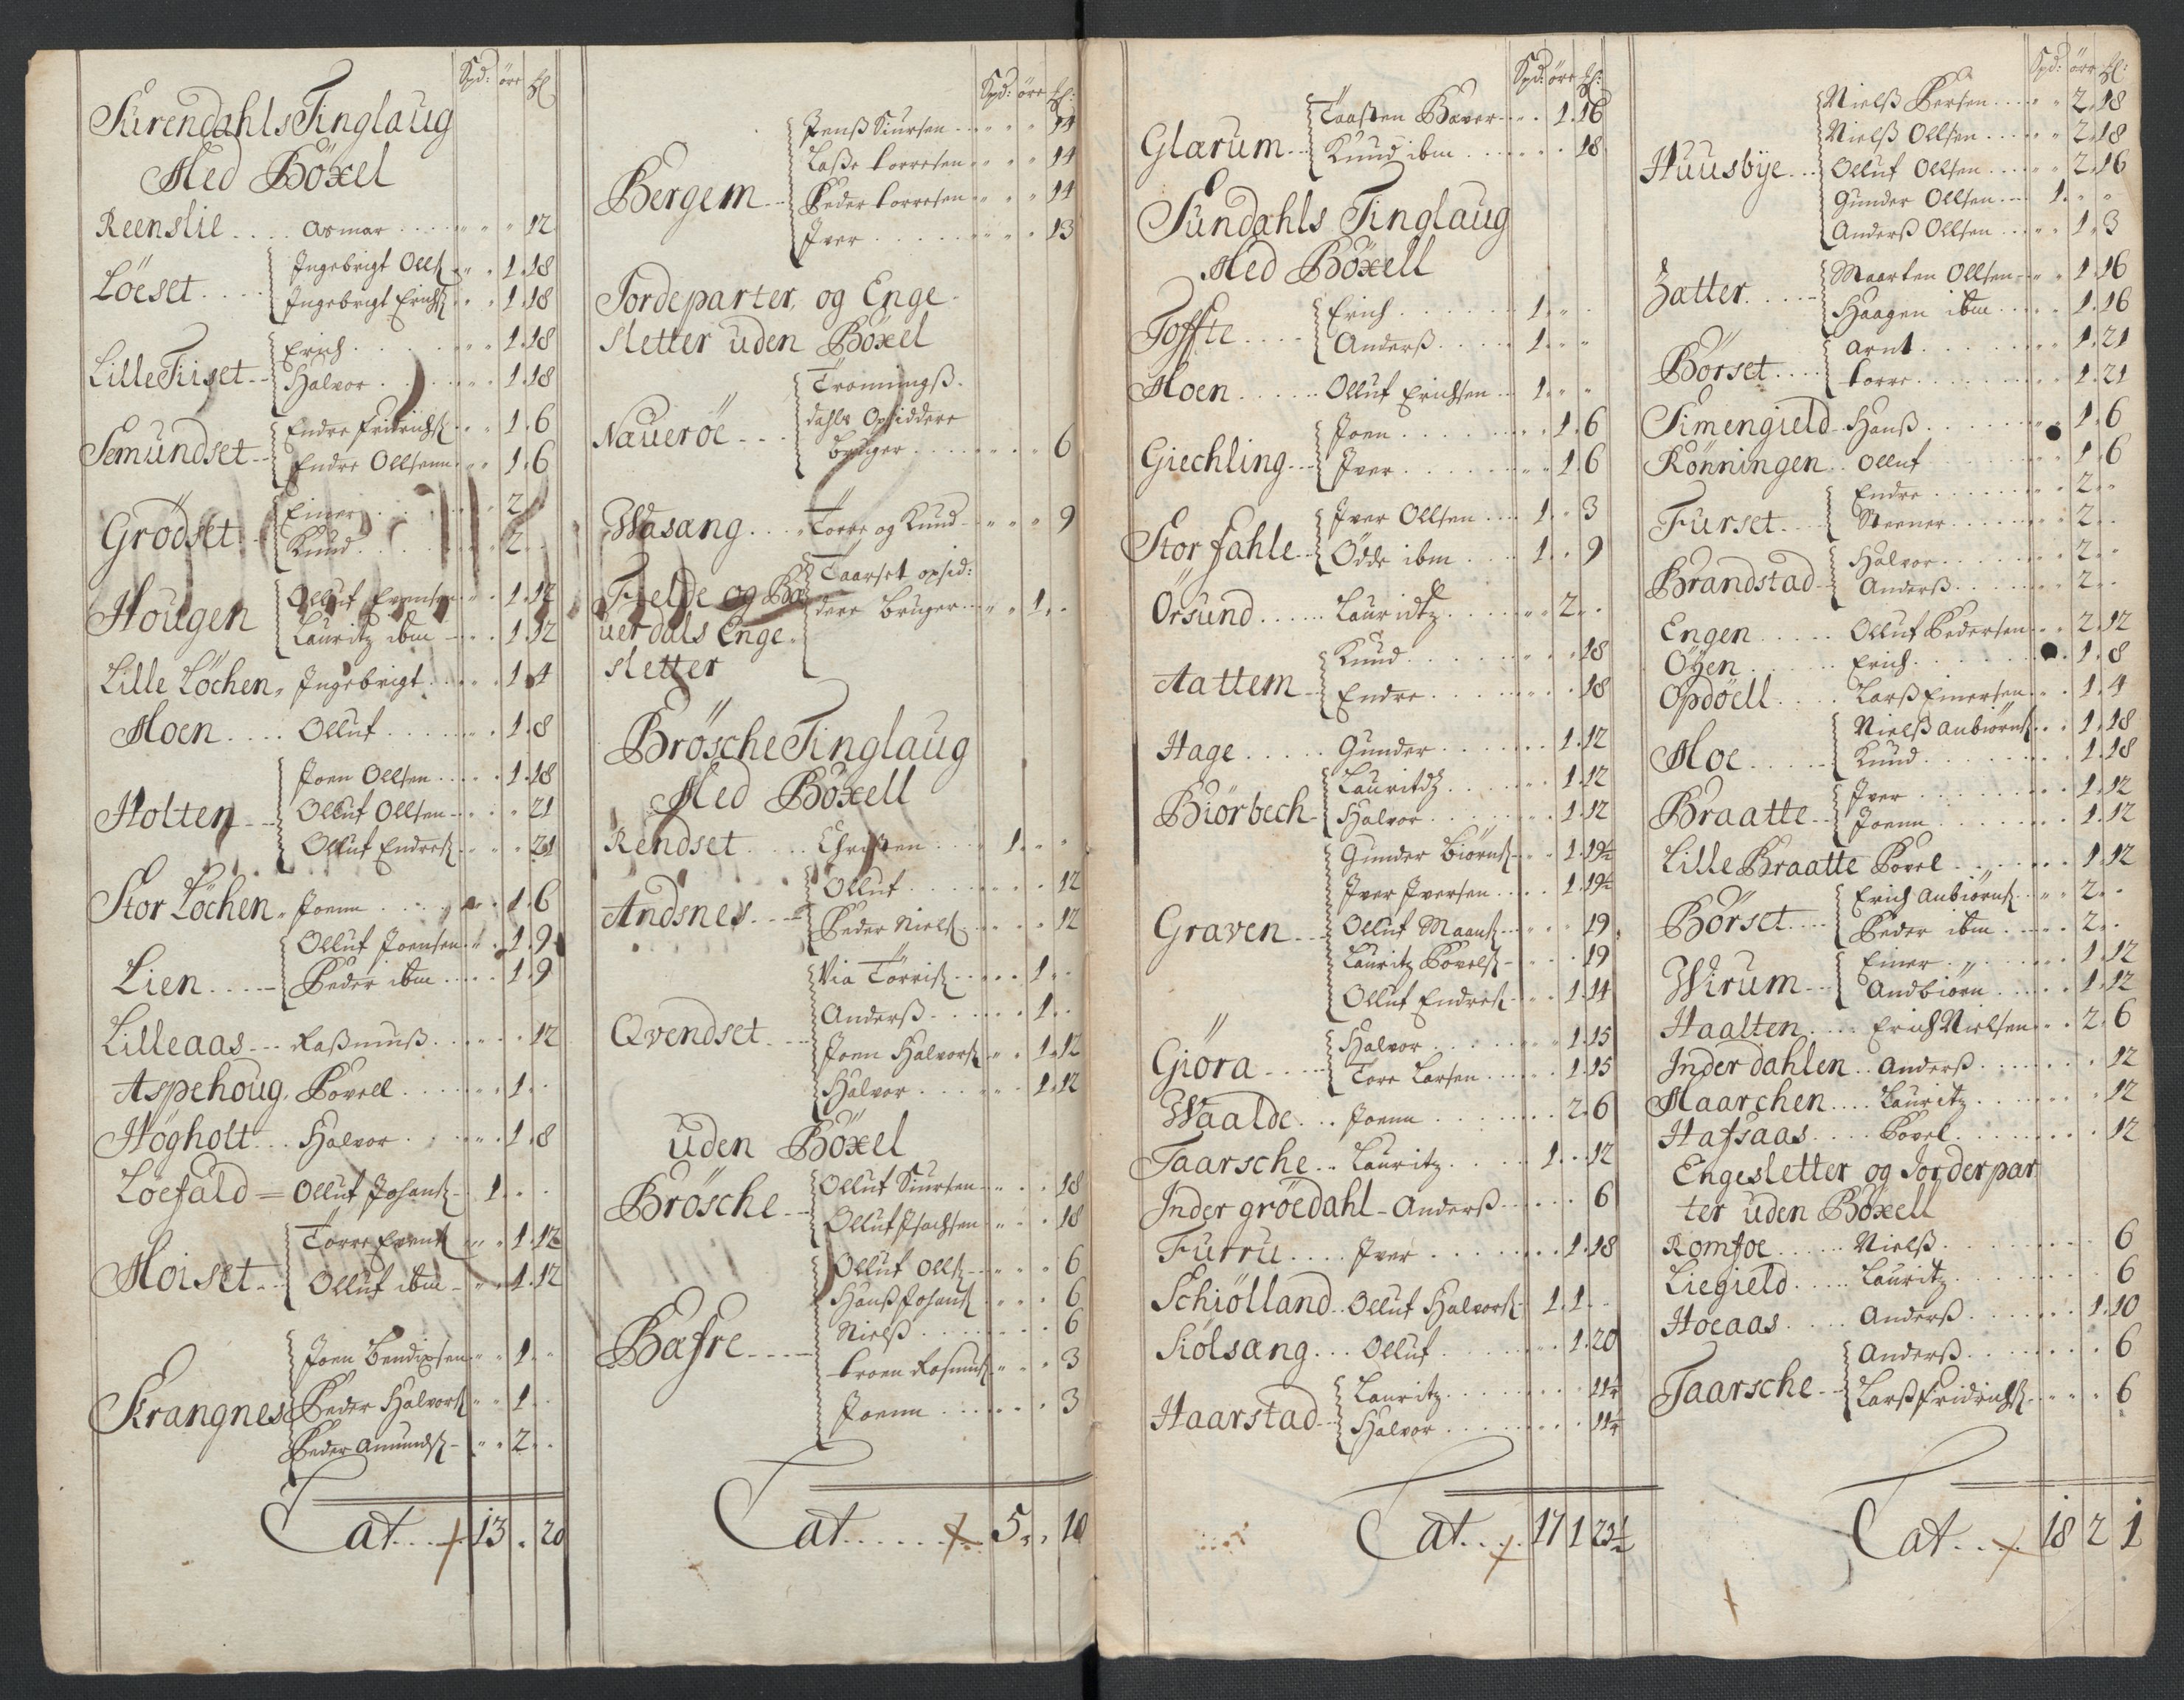 Spd: öre
Surendahls Tinglaug
Med Böxel
Reenslie .... Asmar .... 12
Löeset .... Ingebrigt Olls .. 1. 18
Ingebrigt Erichs .. 1. 18
Lille Fiset -- Erich .... 1. 18
Halvor .... 1. 18
Semundset -- Endre Fridrichs .. 1. 6
Endre Ollsenn .. 1. 6
Grödset Einer .... 2
Knud .... 2
Hougen Olluf Evensen .. 1. 12
Lauritz ibm .. 1. 12
Lille Löchen, Ingebrigt .... 1. 4
Moen .... Olluf .... 1. 8
Holten -- Joen Ollsen .... 1. 18
Olluf Ollsen .... 21
Olluf Endres .... 21
Stor Löchen, Joenn .... 1. 6
Lien .... Olluf Joensen .. 1. 9
Peder ibm .... 1. 9
Lilleaas --- Rasmuss .... 12
Aspehoug, Povell .... 1.
Högholt ... Halvor .... 1. 8
Löefald = Olluf Johans - 1. . .
Moiset -- Törre Evens .. 1. 12
Olluf ibm .. 1. 12
Krangnes Joen Bendixsen .. 1.
Peder Halvors .. 1
Peder Amunds - .. 2
Lat .... 13 . 20
Spd: öre
Bergem -- Jenss Siursen .... 14
Lasse Torresen .... 14
Peder Torresen .... 14
Iver .... 13
Jordeparter, og Enge
sletter uden Böxel
Naueröe --- Tromingss-
dahls Opsiddere
bruger .... 6
Wasang .... Torre og Knud .. 9
Fielde og Bö
uerdals Enge
sletter
Taarset opsid:
dere bruger .... 1. .
Brösche Tinglaug
Med Böxell
Rendset .... Christen .. 1. . .
Andsnes --- Olluf .... 12
Peder Niels .... 12
Qvendset --- Via Törris .... 1. .
Anderss .... 1. .
Joen Halvors .. 1. 12
Halvor .... 1. 12
uden Böxel
Brösche -- Olluf Siursen .... 18
Olluf Isachsen .... 18
Bæfre ---- Olluf Olls .... 6
Hanss Johans .... 6
Nielss .... 6
Troen Rasmus .... 3
Joenn .... 3
Lat ...... 5 . 10
Spd: öre
Glærum -- Taasten Bæver .. 1. 16
Knud ibm .... 18
Sundahls Tinglaug
Med Böxell
Toffte .... Erich .... 1. . .
Anderss .... 1. . .
Moen ...... Olluf Erichsen .. 1. . .
Giechling --- Joen .... 1. 6
Iver .... 1. 6
Stor fahle -- Iver Ollsen .... 1. . 3
Ödde ibm .... 1. . 9
Örsund ...... Lauridtz .... 2. .
Aattem -- Knud .... 18
Endre .... 18
Hage ...... Gunder .... 1. 12
Biörbech - Lauritdz .... 1. 12
Halvor .... 1. 12
Graven -- Gunder Biörns .. 1. 19½
Iver Iversen .... 1. 19½
Olluf Maans .... 19
Lauritz Povels .... 19
Olluf Endres .. 1. 14
Giöra .... Halvor .... 1. 15
Tore Larsen .... 1. 15
Waalde .... Joenn .... 2. 6
Taarsche .. Lauritz .... 1. . 12
Inder gröedahl - Anderss .... 6
Furru .... Iver .... 1. 18
Schiölland .. Olluf Halvors - 1. 1. .
Siölsang ... Olluf .... 1. 20
Haarstad -- Lauritz ....
Halvor ....
Lat .... 17 1 23½
Spd: öre
Huusbÿe --- Nielss Persen .... 2. 18
Nielss Ollsen .... 2. 18
Olluf Ollsen .... 2. 16
Gunder Ollsen ... 1. . .
Anderss Ollsen .... 1. 3
Zætter .... Maarten Ollsen .. 1. 16
Haagen ibm .... 1. 16
Börset .... Arnt .... 1. 21
Torre .... 1. 21
Simengield - Hanss .... 1. 6
Rönningen .. Olluf .... 1. 6
Furset .... Endre .... 2. .
Steener .... 2. .
Brandstad - Halvor .... 2. .
Anderss .... 2. .
Engen ..... Olluf Pedersen .. 2. 12
Öÿen ..... Erich .... 1. 8
Opdöell .... Larss Einersen .. 1. 4
Moe .... Nielss Anbiörns .. 1. 18
Knud .... 1. 18
Braatte -- Iver .... 1. 12
Joenn .... 1. 12
Lille Braatte Povel .... 1. 12
Börset .... Erich Anbiörns .. 2. .
Peder ibm .... 2. .
Wirum --- Einer .... 1. 12
Andbiörn .... 1. 12
Haalten .... Erich Nielsen .. 2. 6
Inder dahlen .. Anderss .... 12
Maarchen .... Lauritz .... 12
Hafsaas .... Povel .... 12
Engesletter og Jorderpar
ter uden Böxell
Romfoe ..... Nielss .... 6
Liegield .... Lauritz .... 6
Hoeaas .... Anderss .... 1. 10
Taarsche -- Anderss .... 6
Larss Fridrichs .... 6
Lat .... 18 2 1